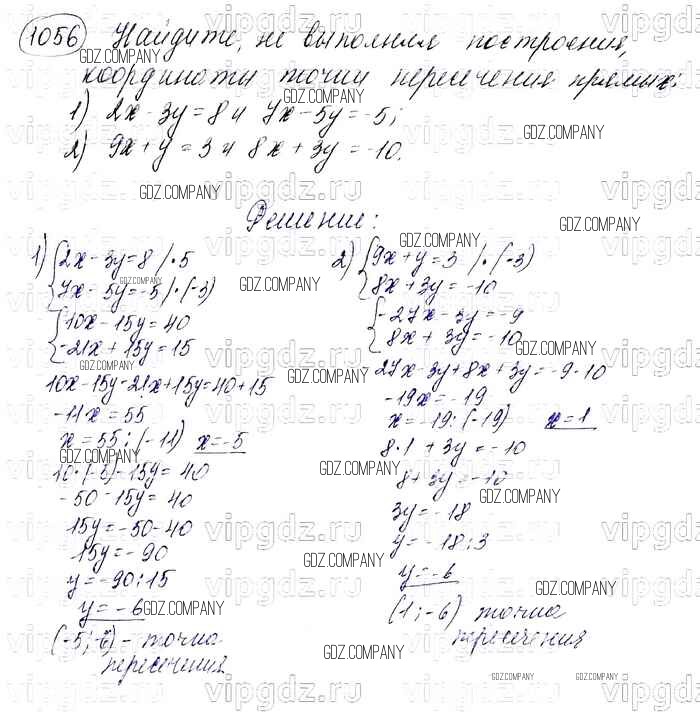 1056 Найдите, не выполняя построения,
координаты точки пересечения прямых:
1) 2x - 3y = 8 и 7x - 5y = -5;
2) 9x + y = 3 и 8x + 3y = -10.
Решение:
1) { 2x - 3y = 8 / · 5
7x - 5y = -5 / · (-3)
{ 10x - 15y = 40
-21x + 15y = 15
10x - 15y - 21x + 15y = 40 + 15
-11x = 55
x = 55 : (-11) x = -5
10 · (-5) - 15y = 40
-50 - 15y = 40
15y = -50 - 40
15y = -90
y = -90 : 15
y = -6
(-5; -6) - точка
пересечения
2) { 9x + y = 3 / · (-3)
8x + 3y = -10
{ -27x - 3y = -9
8x + 3y = -10
27x - 3y + 8x + 3y = -9 - 10
-19x = -19
x = -19 : (-19) x = 1
8 · 1 + 3y = -10
8 + 3y = -10
3y = -18
y = -18 : 3
y = -6
(1; -6) точка
пересечения
GDZ.COMPANY
vipgdz.ru